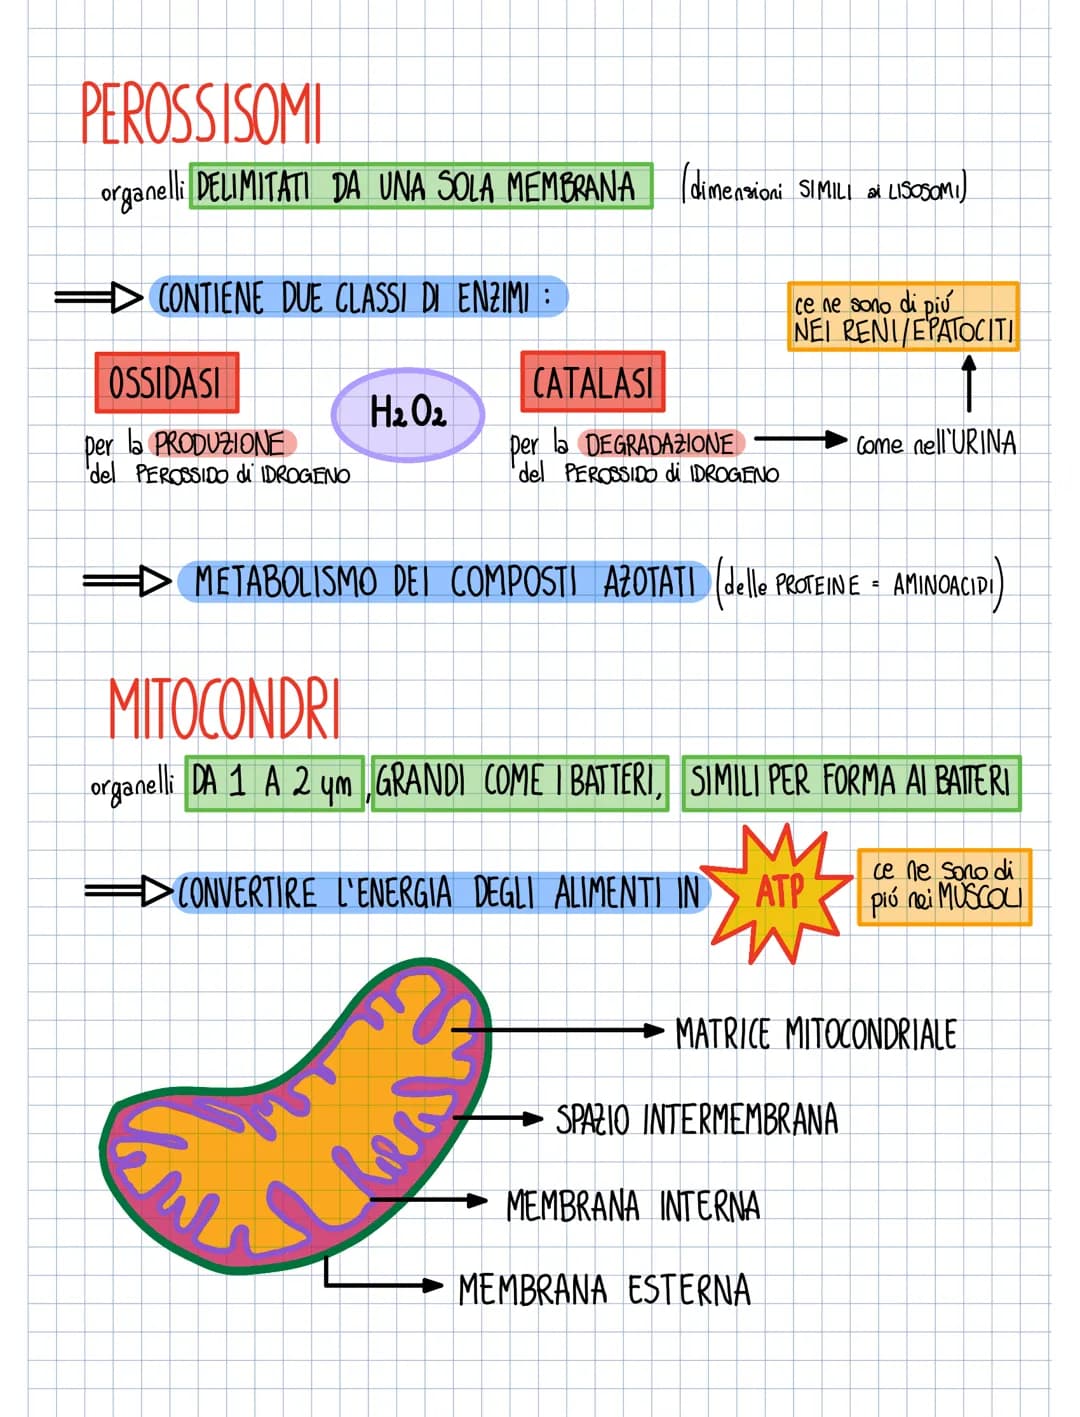 PEROSSISOMI
organelli DELIMITATI DA UNA SOLA MEMBRANA (dimensioni SIMILI ai LISOSOMI)
CONTIENE DUE CLASSI DI ENZIMI :
ce ne sono di piú
NEI RENI/EPATOCITI
OSSIDASI
H2O2
CATALASI
per la PRODUZIONE
del PEROSSIDO di IDROGENO
per la DEGRADAZIONE
del PEROSSIDO di IDROGENO
come nell'URINA
METABOLISMO DEI COMPOSTI AZOTATI (delle PROTEINE = AMINOACIDI)
MITOCONDRI
organelli DA 1 A 2 μm, GRANDI COME I BATTERI, SIMILI PER FORMA AI BATTERI
CONVERTIRE L'ENERGIA DEGLI ALIMENTI IN ATP
ce ne sono di
piú nei MUSCOLI
MATRICE MITOCONDRIALE
SPAZIO INTERMEMBRANA
MEMBRANA INTERNA
MEMBRANA ESTERNA